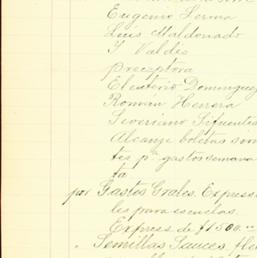 Eugenio Serma
Luis Maldonado
Y Valdés
preceptora
Eleuterio Dominguez
Roman Herrera
Severiano Sifuentes
Alcance boletas
tes pa gastos semana
ta
por Gastos Grales. Express
les para escuelas.
Express de $1500.00
" Semillas Sauces, fle